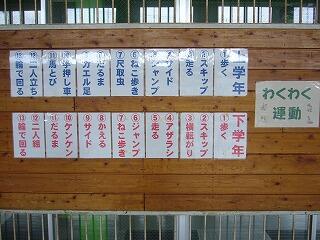 上学年
①歩く
②スキップ
③走る
④サイド
⑤ジャンプ
⑥ねこ歩き
⑦尺取虫
⑧カエル足
⑨だるま
⑩手押し車
⑪馬とび
⑫二人立ち
⑬輪で回る
わくわく
運動
下学年
①歩く
②スキップ
③横転がり
④アザラシ
⑤走る
⑥ジャンプ
⑦ねこ歩き
⑧かえる
⑨サイド
⑩ケンケン
⑪だるま
⑫二人組
⑬輪で回る